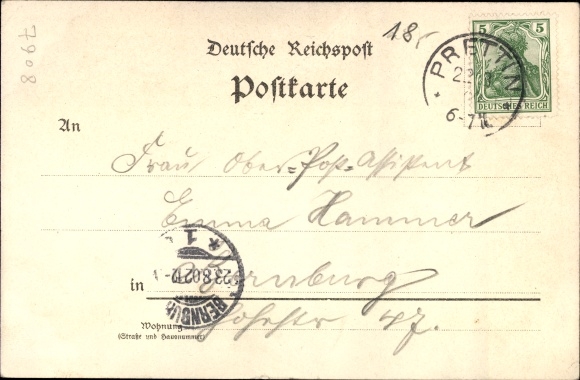 7908
18
Deutsche Reichspost
Postkarte
5 5
DEUTSCHES REICH
PRETTIN
22
6-7N.
An
Frau Ober=Post=Assistent
Emma Hammer
* 1
23.8.02
BERNBURG
in Bernburg
Wohnung
(Straße und Hausnummer)
47.